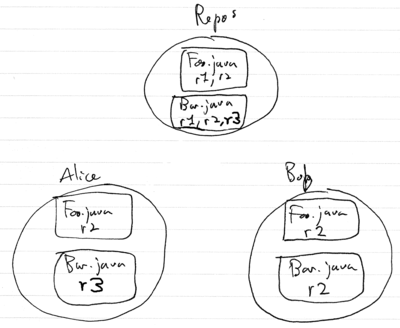 Repos
Foo.java
r1, r2
Bar.java
r1, r2, r3
Alice
Foo.java
r2
Bar.java
r3
Bob
Foo.java
r2
Bar.java
r2